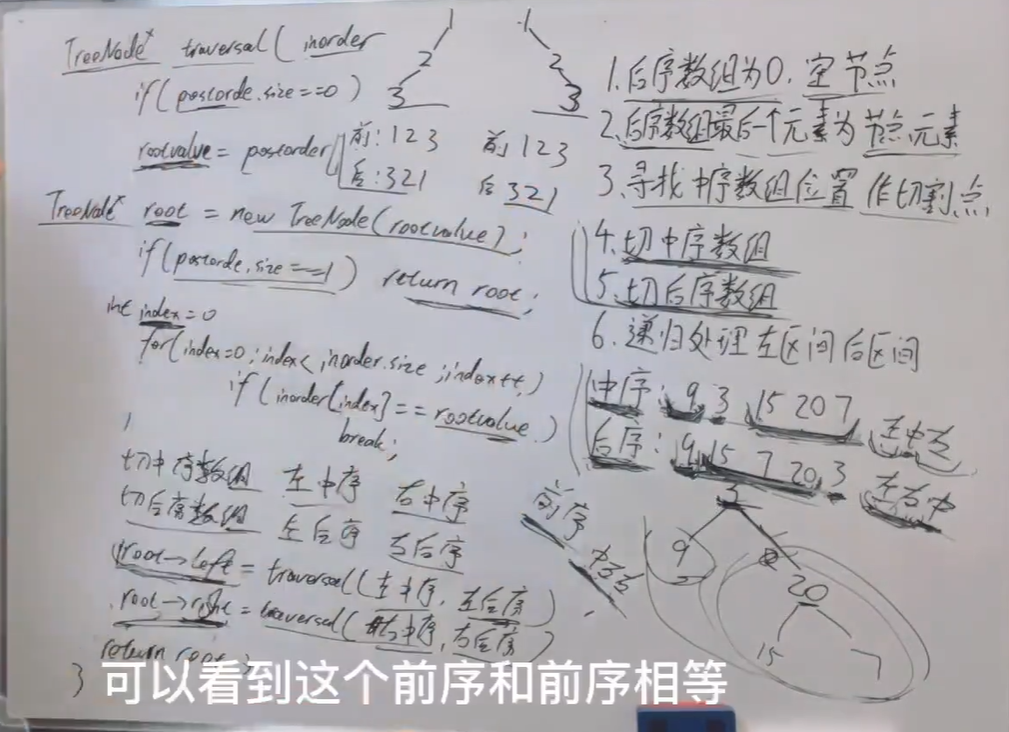 TreeNode* traversal( inorder
if( postorde.size==0 )
rootvalue = postorder
前:123
后:321
前 123
后 321
TreeNode* root = new TreeNode(rootvalue);
if(postorde.size==1) return root;
int index=0
for(index=0;index<inorder.size;index++)
if(inorder[index]==rootvalue)
break;
切中序数组 左中序 右中序
切后序数组 左后序 右后序
root->left = traversal(左中序,左后序)
root->right = traversal(右中序,右后序)
return root;
}
1
2
3
1
2
3
1.后序数组为0.空节点
2.后序数组最后一个元素为节点元素
3.寻找中序数组位置作切割点
4.切中序数组
5.切后序数组
6.递归处理左区间后区间
中序:9 3 15 20 7 左中右
后序:9 15 7 20 3 左右中
前序
中左右
3
9
20
15 7
可以看到这个前序和前序相等